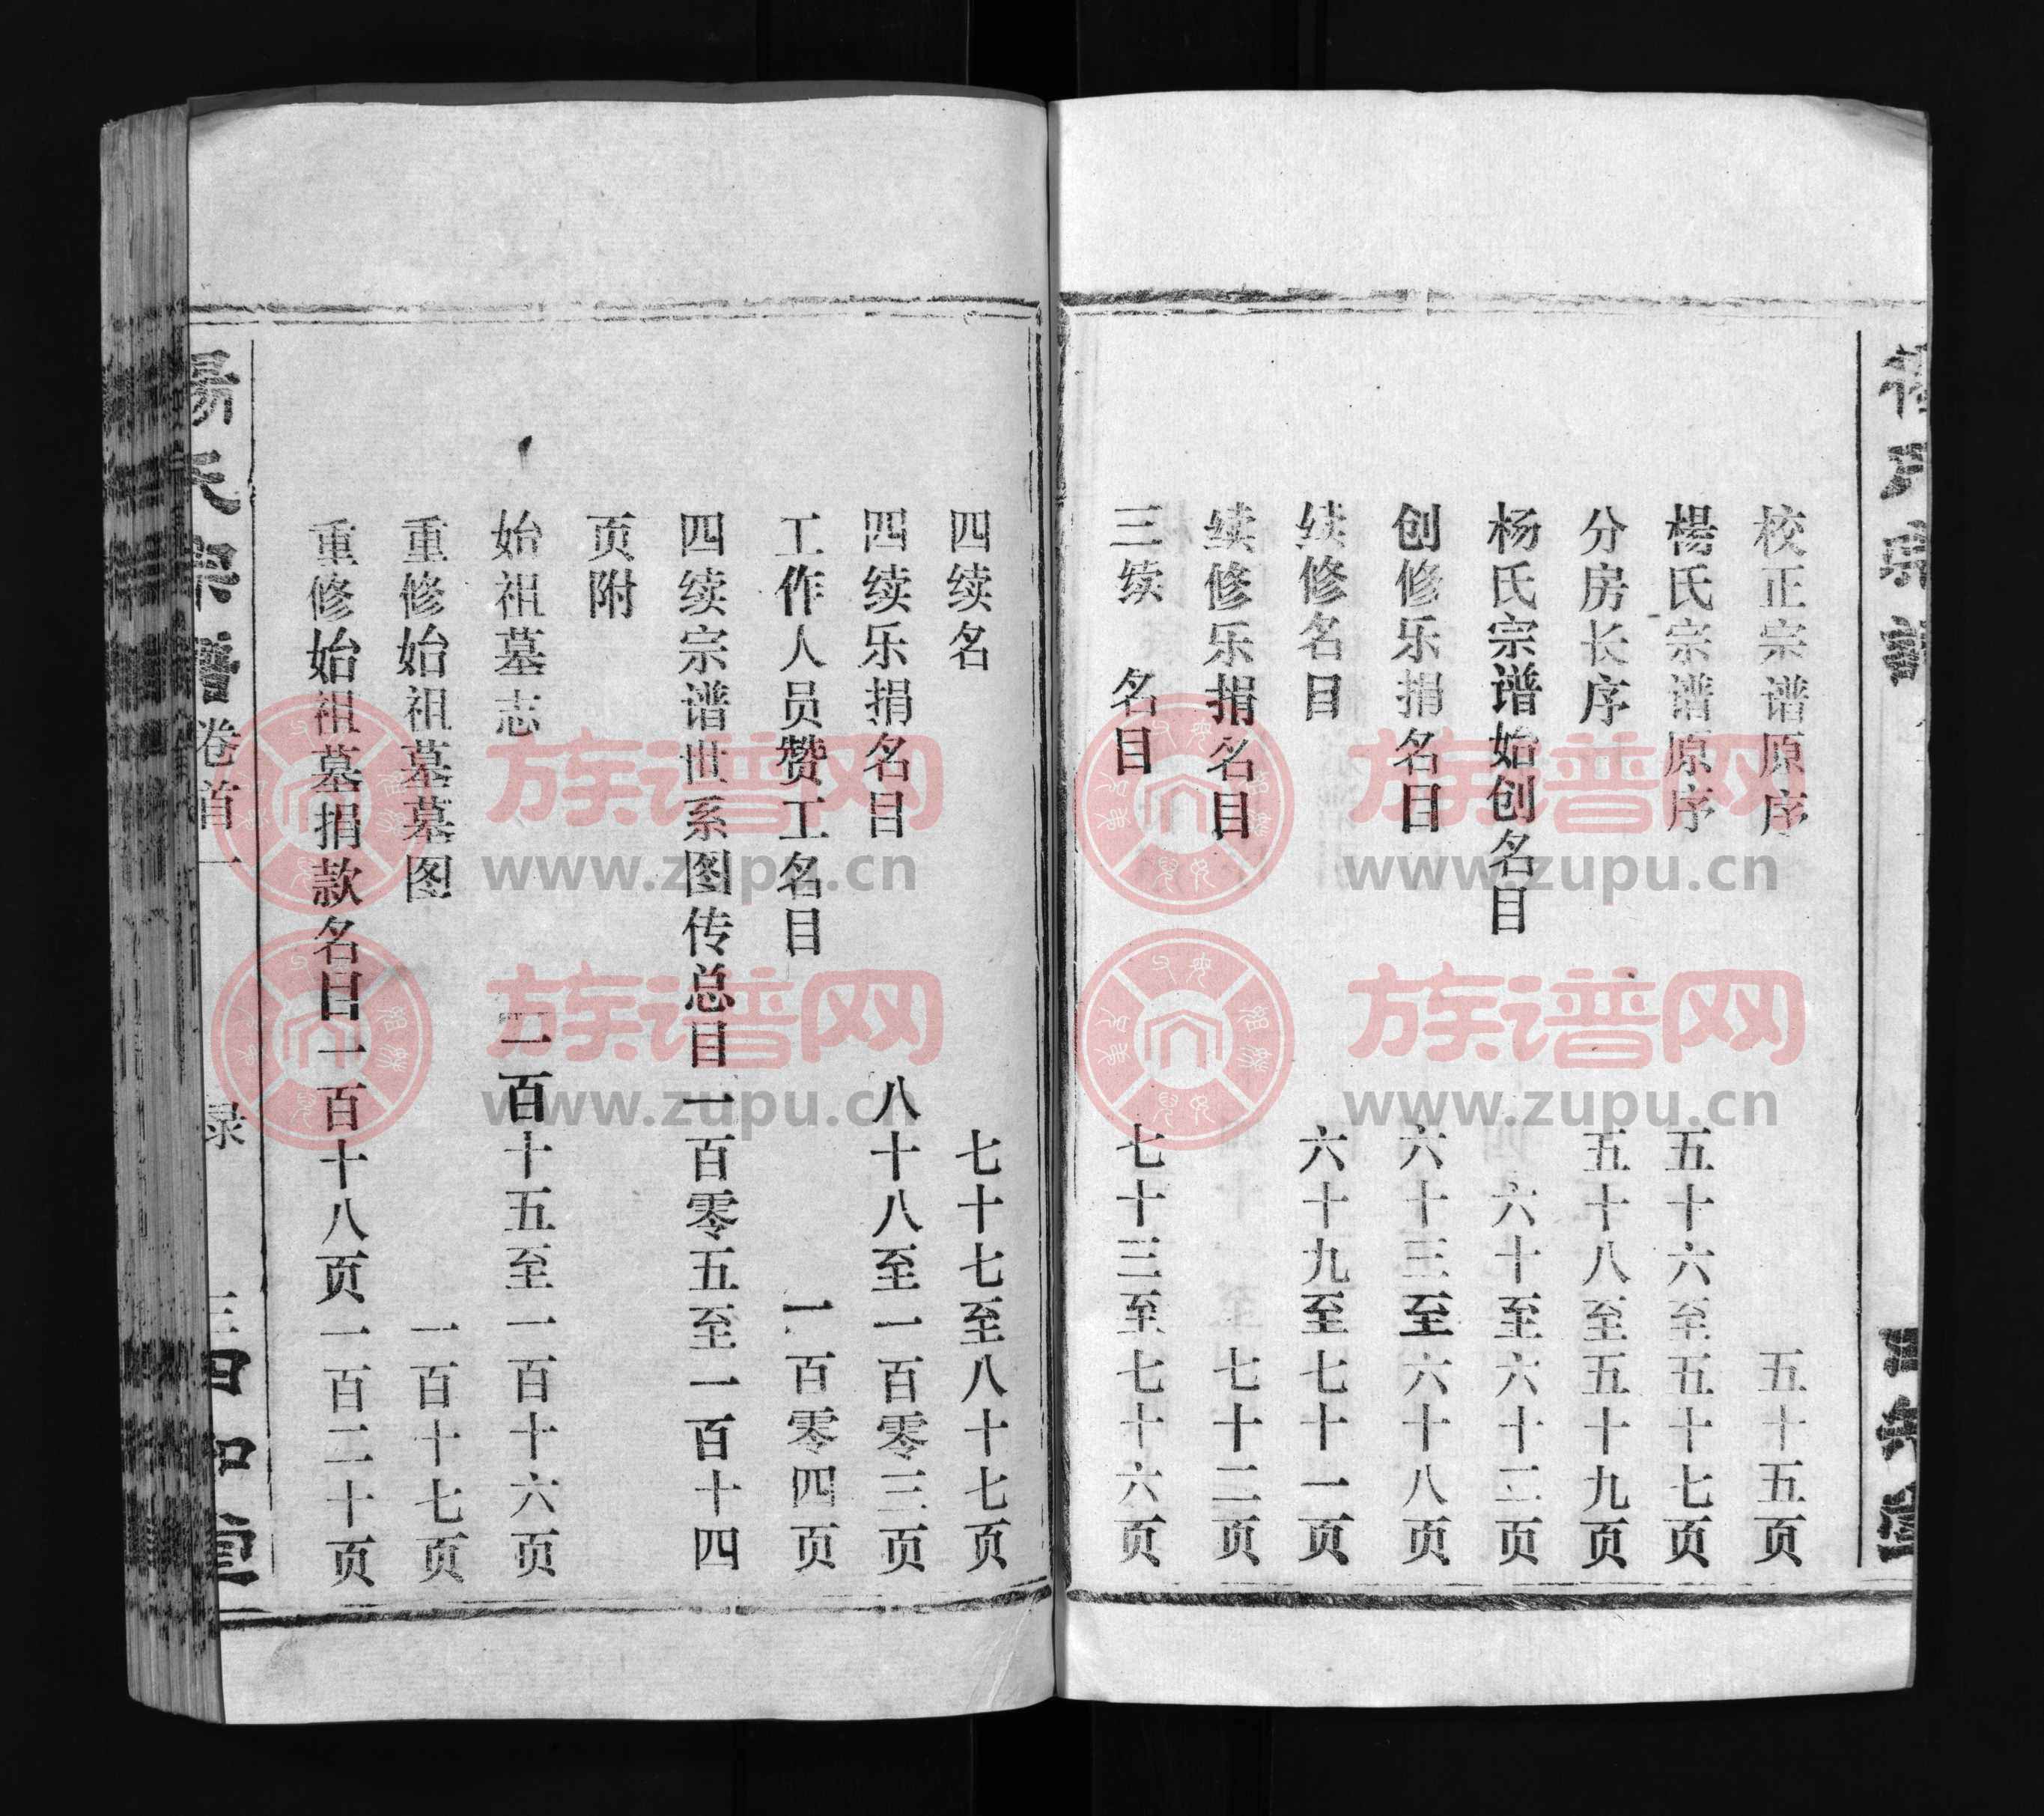 校正宗谱原序 五十五页
楊氏宗谱原序 五十六至五十七页
分房长序 五十八至五十九页
杨氏宗谱始创名目 六十至六十二页
创修乐捐名目 六十三至六十八页
续修名目 六十九至七十一页
续修乐捐名目 七十二页
三续 名目 七十三至七十六页
四续名 七十七至八十七页
四续乐捐名目 八十八至一百零三页
工作人员赞工名目 一百零四页
四续宗谱世系图传总目一百零五至一百十四
页附
始祖墓志 一百十五至一百十六页
重修始祖墓墓图 一百十七页
重修始祖墓捐款名目一百十八页一百二十页
楊氏宗譜 卷首一 录 三 四知堂
族谱网
www.zupu.cn
族谱网
www.zupu.cn
族谱网
www.zupu.cn
族谱网
www.zupu.cn